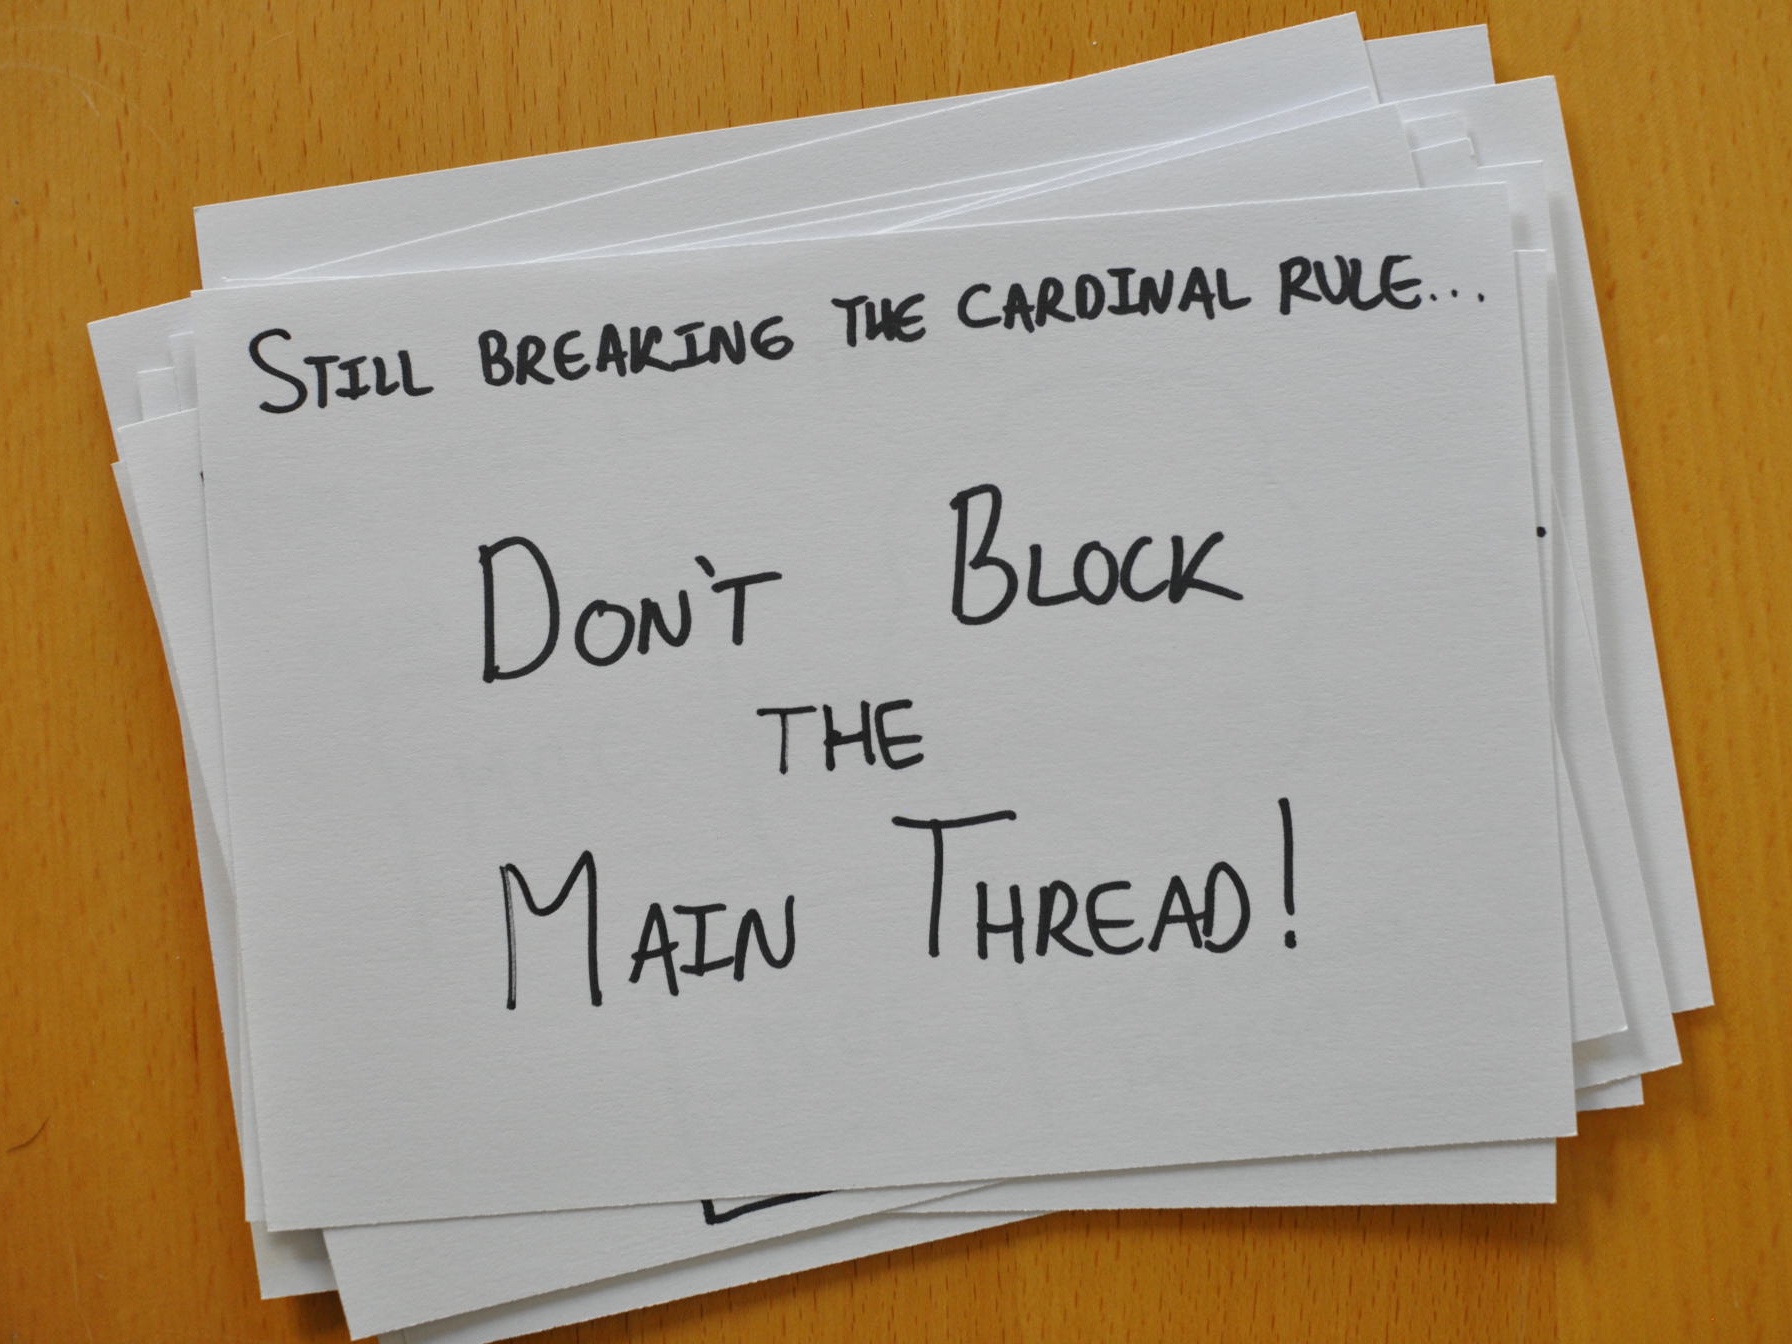 STILL BREAKING THE CARDINAL RULE...
DON'T BLOCK
THE
MAIN THREAD!